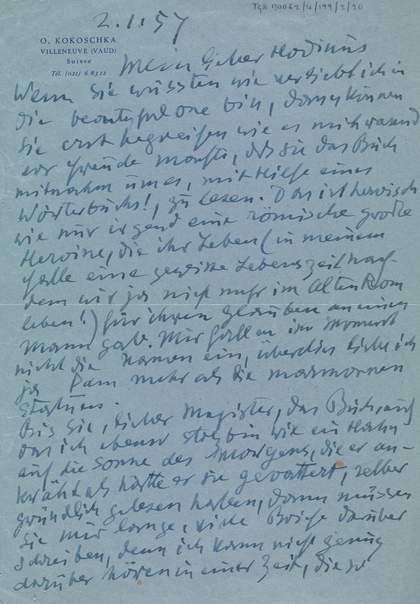 TGA 90062/4/199/2/20
2.1.57
O. KOKOSCHKA
VILLENEUVE (VAUD)
Suisse
Tél. (021) 6 83 22
Mein lieber Hodinus
Wenn Sie wüssten wie verliebt ich in
die beautyful one bin, dann können
Sie erst begreifen wie es mich rasend
vor Freude machte, dass sie das Buch
mitnahm um es, mit Hilfe eines
Wörterbuchs!, zu lesen. Das ist heroisch
wie nur irgend eine römische große
Heroine, die ihr Leben (in meinem
Falle eine gewisse Lebenszeit nach-
dem wir ja nicht mehr im alten Rom
leben!) für ihren Glauben an einen
Mann gab. Mir fallen im Moment
nicht die Namen ein, überdies liebe ich
ja Pam mehr als die marmornen
Statuen.
Bis Sie, lieber Magister, das Buch, auf
das ich ebenso stolz bin wie ein Hahn
auf die Sonne des Morgens, die er an-
kräht als hätte er sie gevattert, selber
gründlich gelesen haben, dann müssen
Sie mir lange, viele Briefe darüber
schreiben, denn ich kann nicht genug
darüber hören in einer Zeit, die so